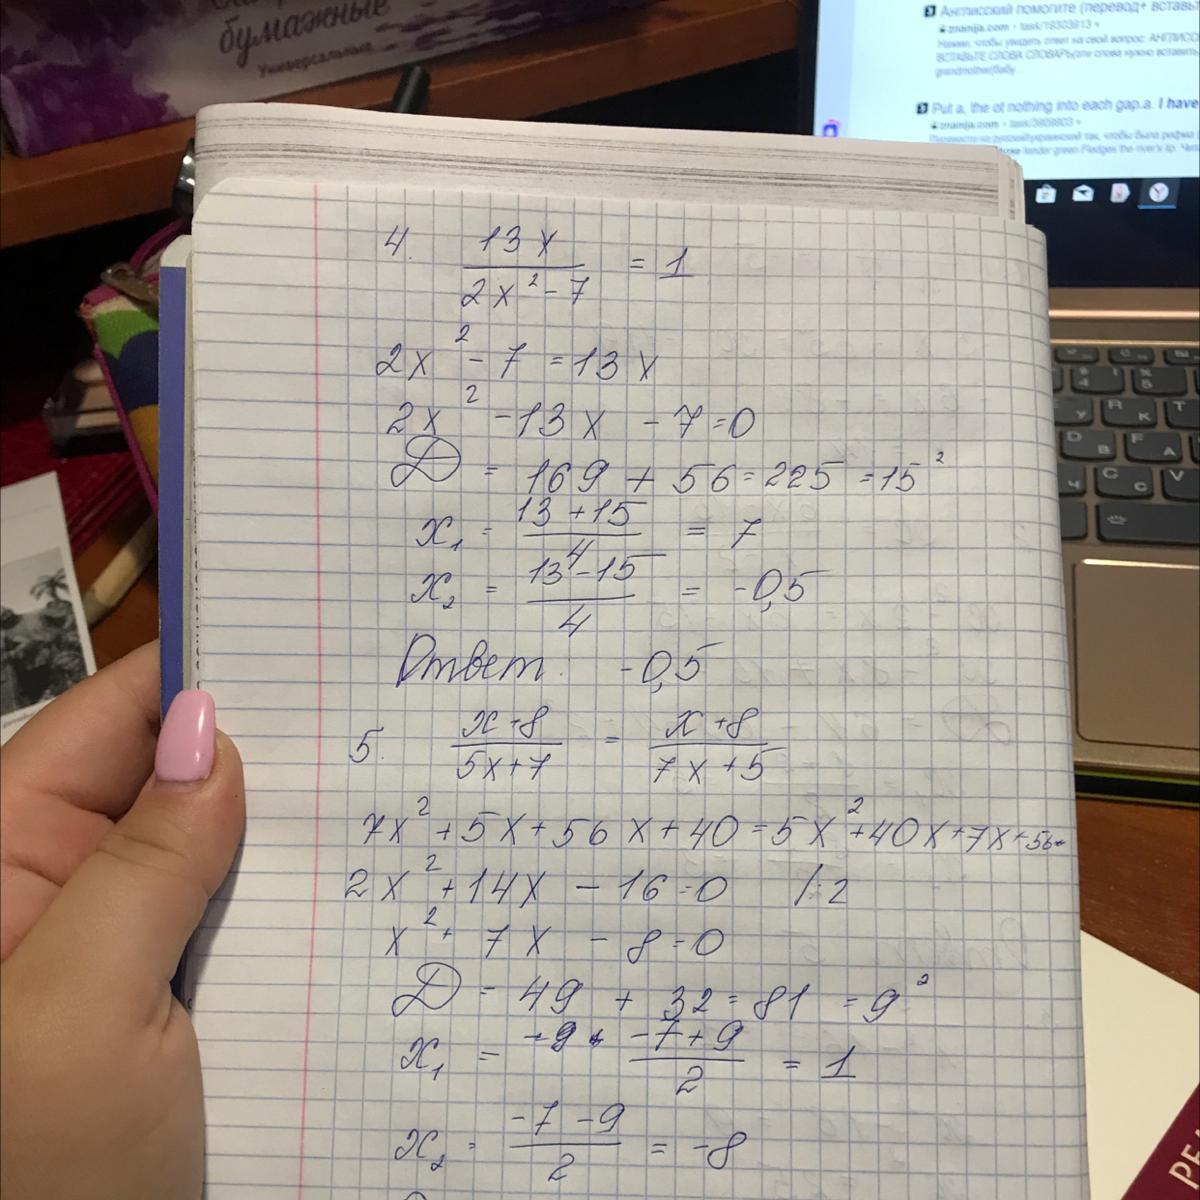 бумажные
Универсальные
Английский помогите (перевод+ вставьт
znanija.com › task/18303813
Нажми, чтобы увидеть ответ на свой вопрос: АНГЛИСС
ВСТАВЬТЕ СЛОВА СЛОВАРЬ(эти слова нужно вставить,
grandmother/baby...
Put a, the or nothing into each gap.a. I have
znanija.com › task/3809803
4. 13x / (2x² - 7) = 1
2x² - 7 = 13x
2x² - 13x - 7 = 0
Д = 169 + 56 = 225 = 15²
x₁ = (13 + 15) / 4 = 7
x₂ = (13 - 15) / 4 = -0,5
Ответ: -0,5
5. (x + 8) / (5x + 7) = (x + 8) / (7x + 5)
7x² + 5x + 56x + 40 = 5x² + 40x + 7x + 56
2x² + 14x - 16 = 0 /:2
x² + 7x - 8 = 0
Д = 49 + 32 = 81 = 9²
x₁ = (-7 + 9) / 2 = 1
x₂ = (-7 - 9) / 2 = -8